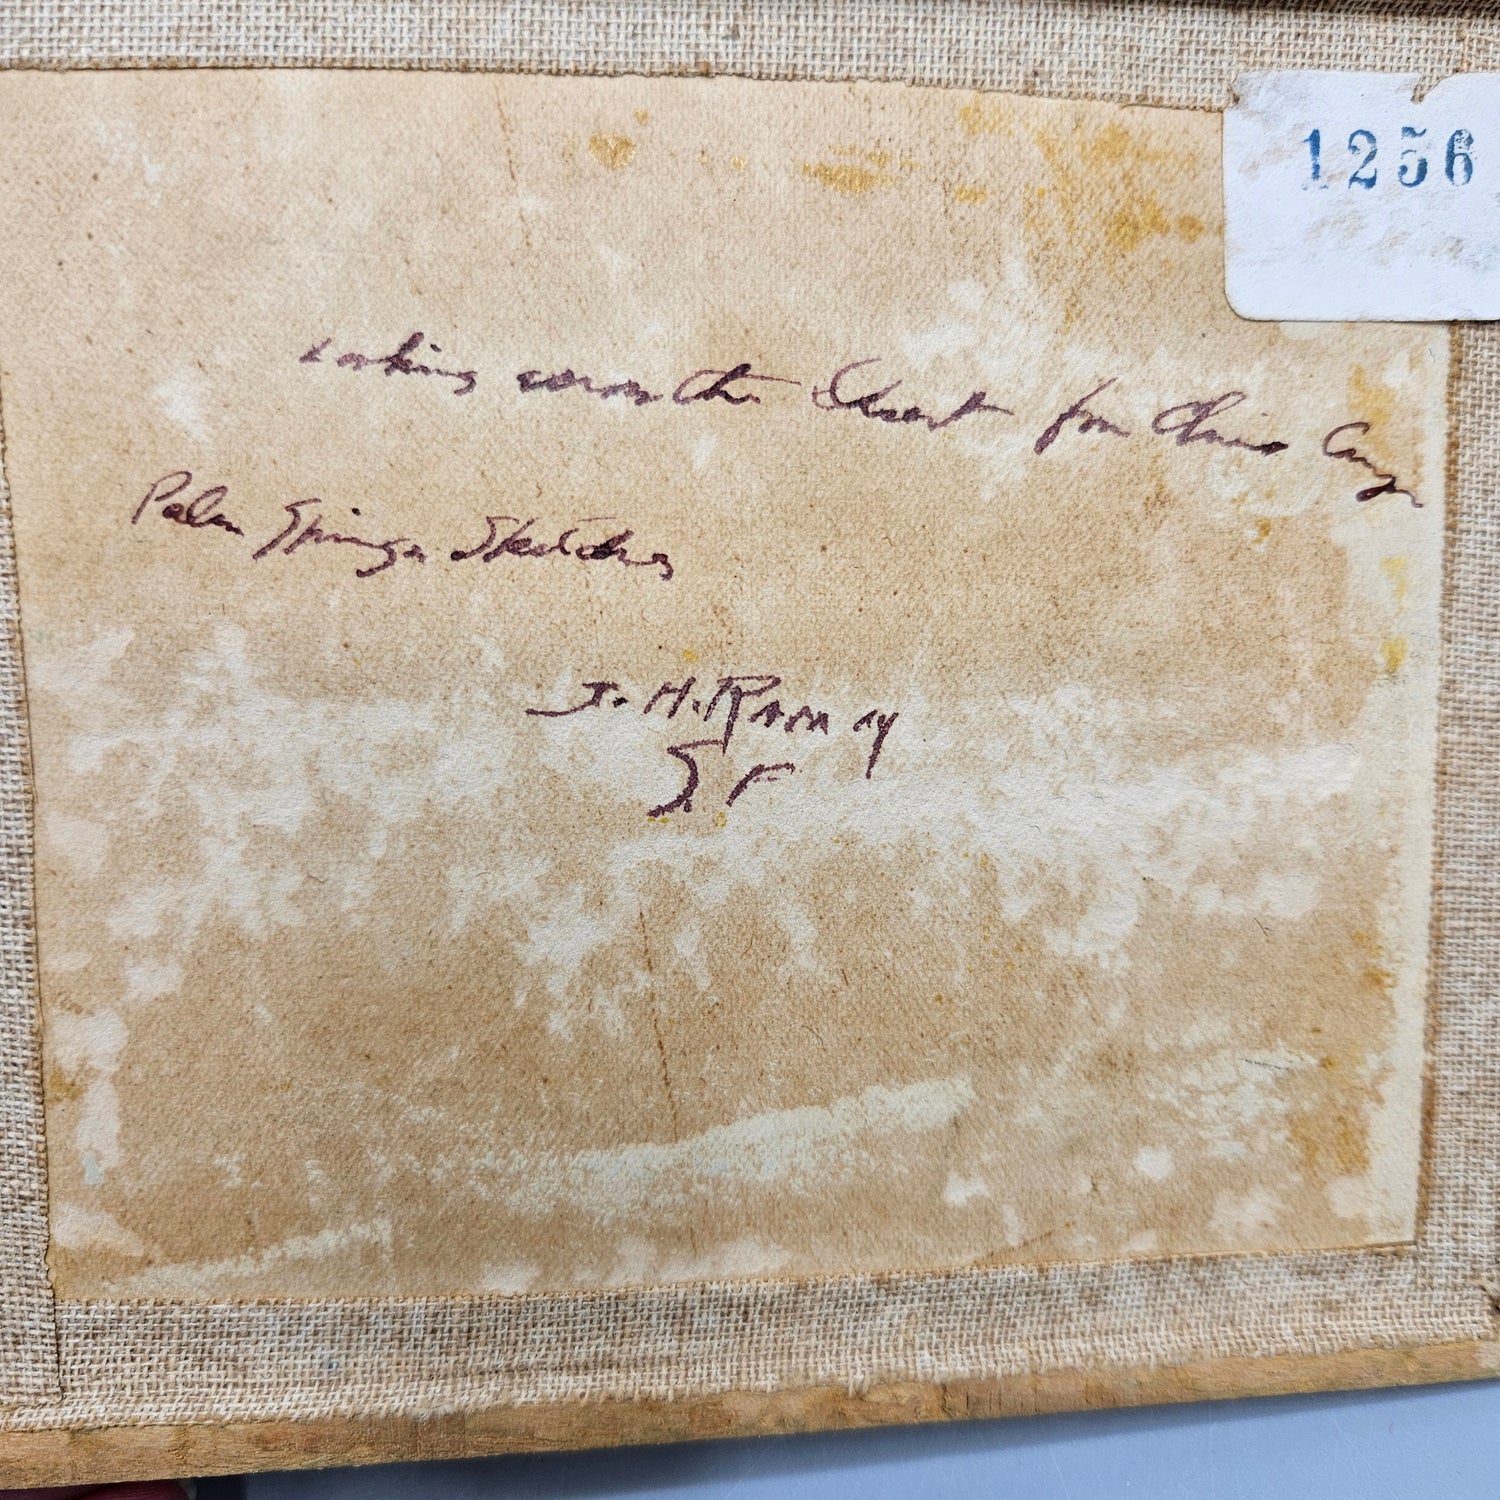 1256
Looking across the Desert from Chino Canyon
Palm Springs Sketches
J. H. Ramey
S. F